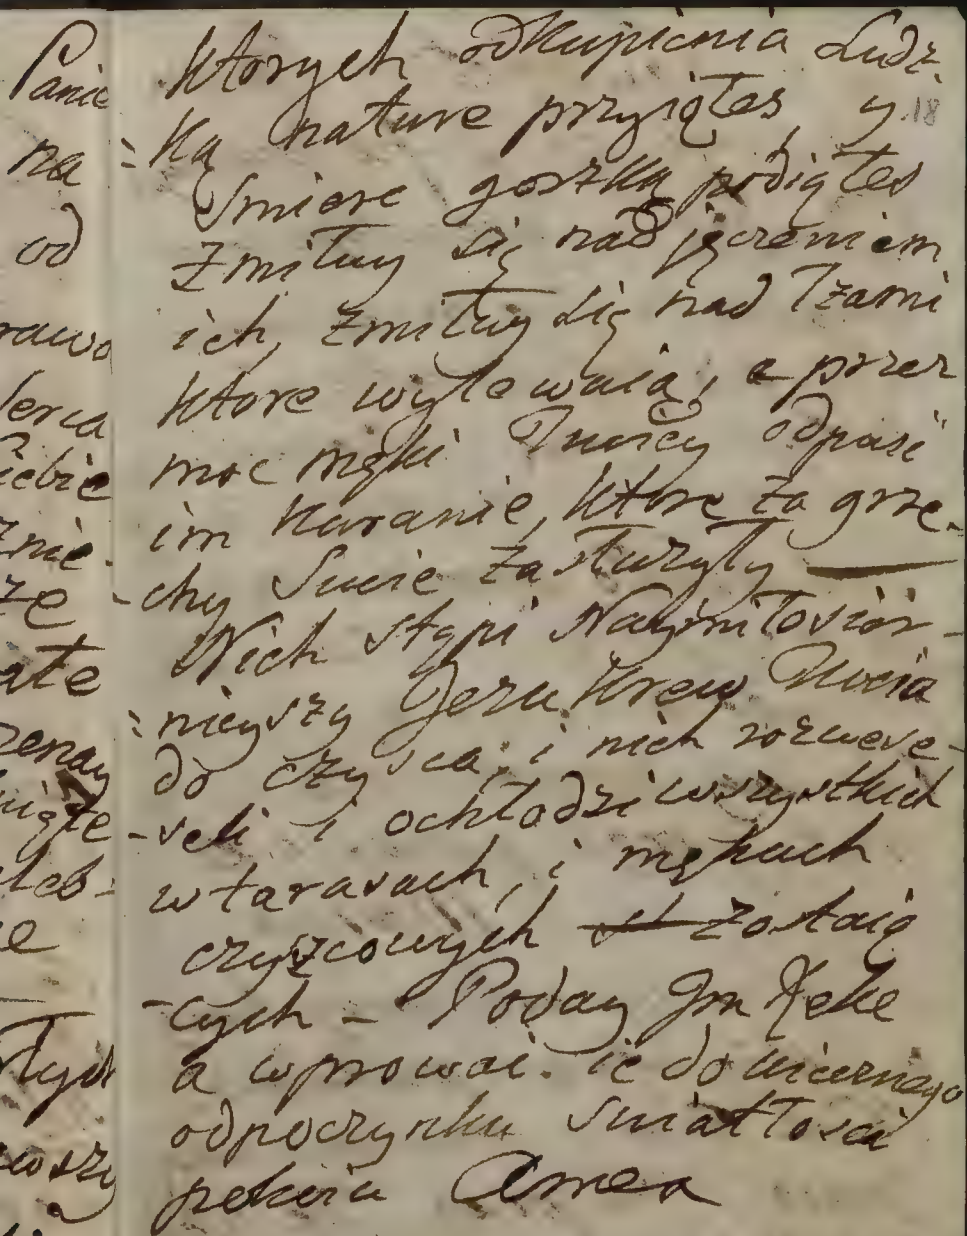 Panie
na
od
rawo
serca
Ciebie
znie-
ze
ate
zenay
ięte
leb-
e
Tych
wszy
Ktorych odkupienia Ludz
18
=ką nature przyiąłes, y
Smierc gorzką podiąłes
Zmiłuy się nad jęczeniem
ich, Zmiłuy się nad łzami
Ktore wylewaią, a przez
moc męki Twoiey odpusć
im Karanie, Ktore za grze-
-chy Swoie zasłużyły
Niech stąpi Naymiłosier-
=nieyszy Jezu Krew Twoia
do czysca i niech rozwese-
-seli i ochłodzi wszystkich
w tarasach, i mękach
czyszcowych zostaią
-cych - Poday Jm Reke
a wprować ie do wiecznego
odpoczynku swiatłosci
pokoiu Amen